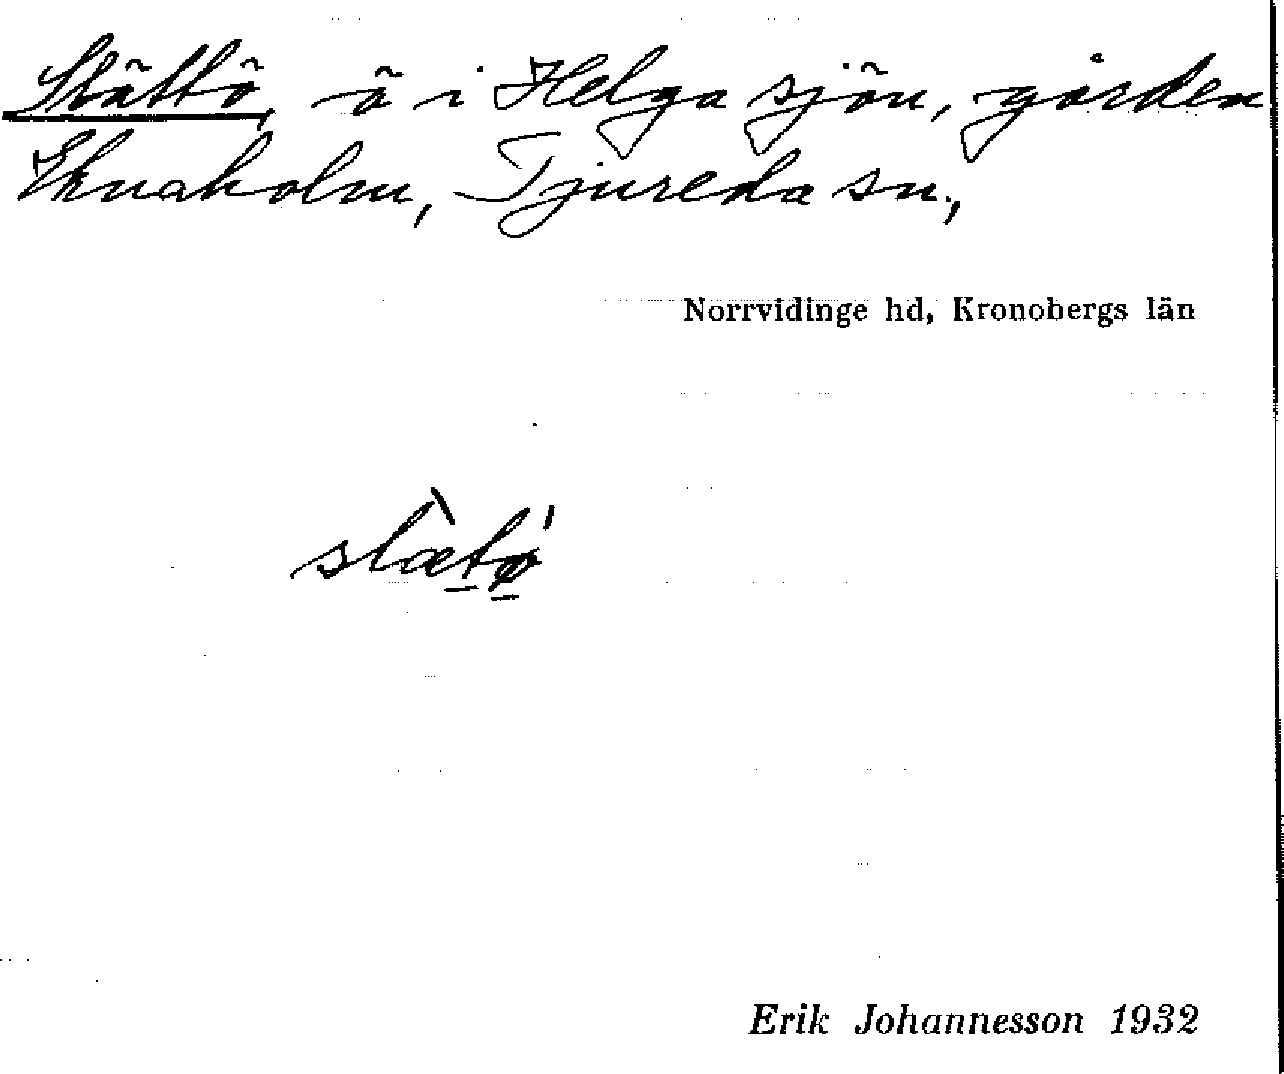 Slättö, ö i Helgasjön, gården
Eknaholm, Tjureda sn.,
Norrvidinge hd, Kronobergs län
slæ̀tø'
Erik Johannesson 1932